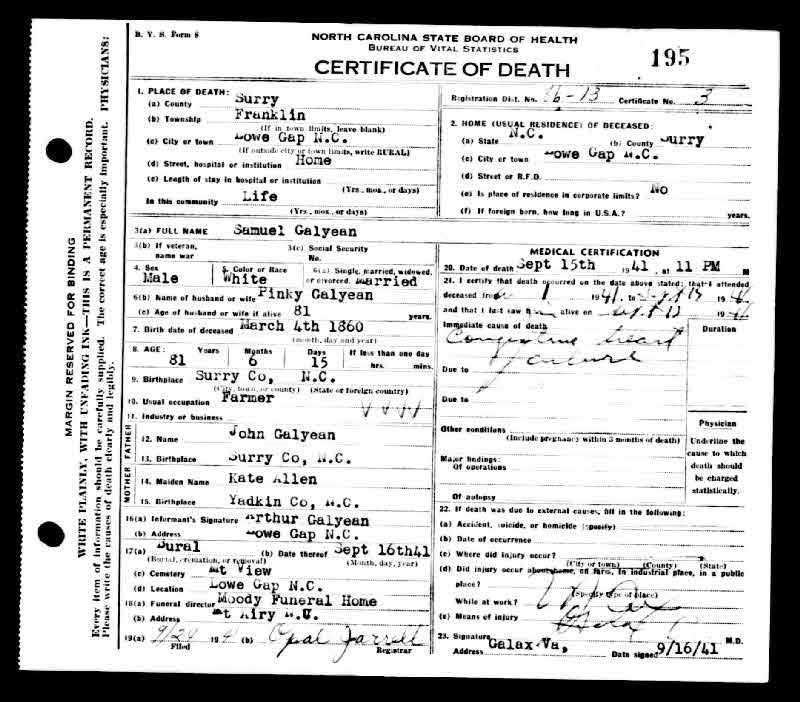 B. V. S. Form 8
NORTH CAROLINA STATE BOARD OF HEALTH
BUREAU OF VITAL STATISTICS
CERTIFICATE OF DEATH
195
MARGIN RESERVED FOR BINDING
WRITE PLAINLY, WITH UNFADING INK—THIS IS A PERMANENT RECORD.
Every item of information should be carefully supplied. The correct age is especially important. PHYSICIANS:
Please write the causes of death clearly and legibly.
1. PLACE OF DEATH:
(a) County Surry
(b) Township Franklin
(If in town limits, leave blank)
(c) City or town Lowe Gap N.C.
(If outside city or town limits, write RURAL)
(d) Street, hospital or institution Home
(e) Length of stay in hospital or institution
(Yrs., mos., or days)
In this community Life
(Yrs., mos., or days)
Registration Dist. No. 86-13 Certificate No. 3
2. HOME (USUAL RESIDENCE) OF DECEASED:
(a) State N.C. (b) County Surry
(c) City or town Lowe Gap N.C.
(d) Street or R.F.D.
(e) Is place of residence in corporate limits? No
(f) If foreign born, how long in U.S.A.? years.
3(a) FULL NAME Samuel Galyean
3(b) If veteran, name war
3(c) Social Security No.
4. Sex Male
5. Color or Race White
6(a) Single, married, widowed, or divorced Married
6(b) Name of husband or wife Pinky Galyean
(c) Age of husband or wife if alive 81 years.
7. Birth date of deceased March 4th 1860
(month, day and year)
8. AGE: Years Months Days If less than one day
81 6 15 hrs. mins.
9. Birthplace Surry Co, N.C.
(City, town, or county) (State or foreign country)
10. Usual occupation Farmer
11. Industry or business
FATHER
12. Name John Galyean
13. Birthplace Surry Co, N.C.
MOTHER
14. Maiden Name Kate Allen
15. Birthplace Yadkin Co, N.C.
16(a) Informant's Signature Arthur Galyean
(b) Address Lowe Gap N.C.
17(a) Bural (b) Date thereof Sept 16th41
(Burial, cremation, or removal) (Month, day, year)
(c) Cemetery Mt View
(d) Location Lowe Gap N.C.
18(a) Funeral director Moody Funeral Home
(b) Address Mt Airy N.C.
19(a) 9/24 194 (b) Opal Jarrell
Filed Registrar
MEDICAL CERTIFICATION
20. Date of death Sept 15th 1941 at 11 PM M
21. I certify that death occurred on the date above stated; that I attended
deceased from 1941
and that I last saw him alive on
Immediate cause of death Duration
Congestive heart
failure
Due to
Due to
Other conditions
(Include pregnancy within 3 months of death)
Major findings:
Of operations
Of autopsy
Physician
Underline the cause to which death should be charged statistically.
22. If death was due to external causes, fill in the following:
(a) Accident, suicide, or homicide (specify)
(b) Date of occurrence
(c) Where did injury occur?
(City or town) (County) (State)
(d) Did injury occur about home, on farm, in industrial place, in a public
place?
(Specify type of place)
While at work?
(e) Means of injury
23. Signature M.D.
Address Galax Va, Date signed 9/16/41